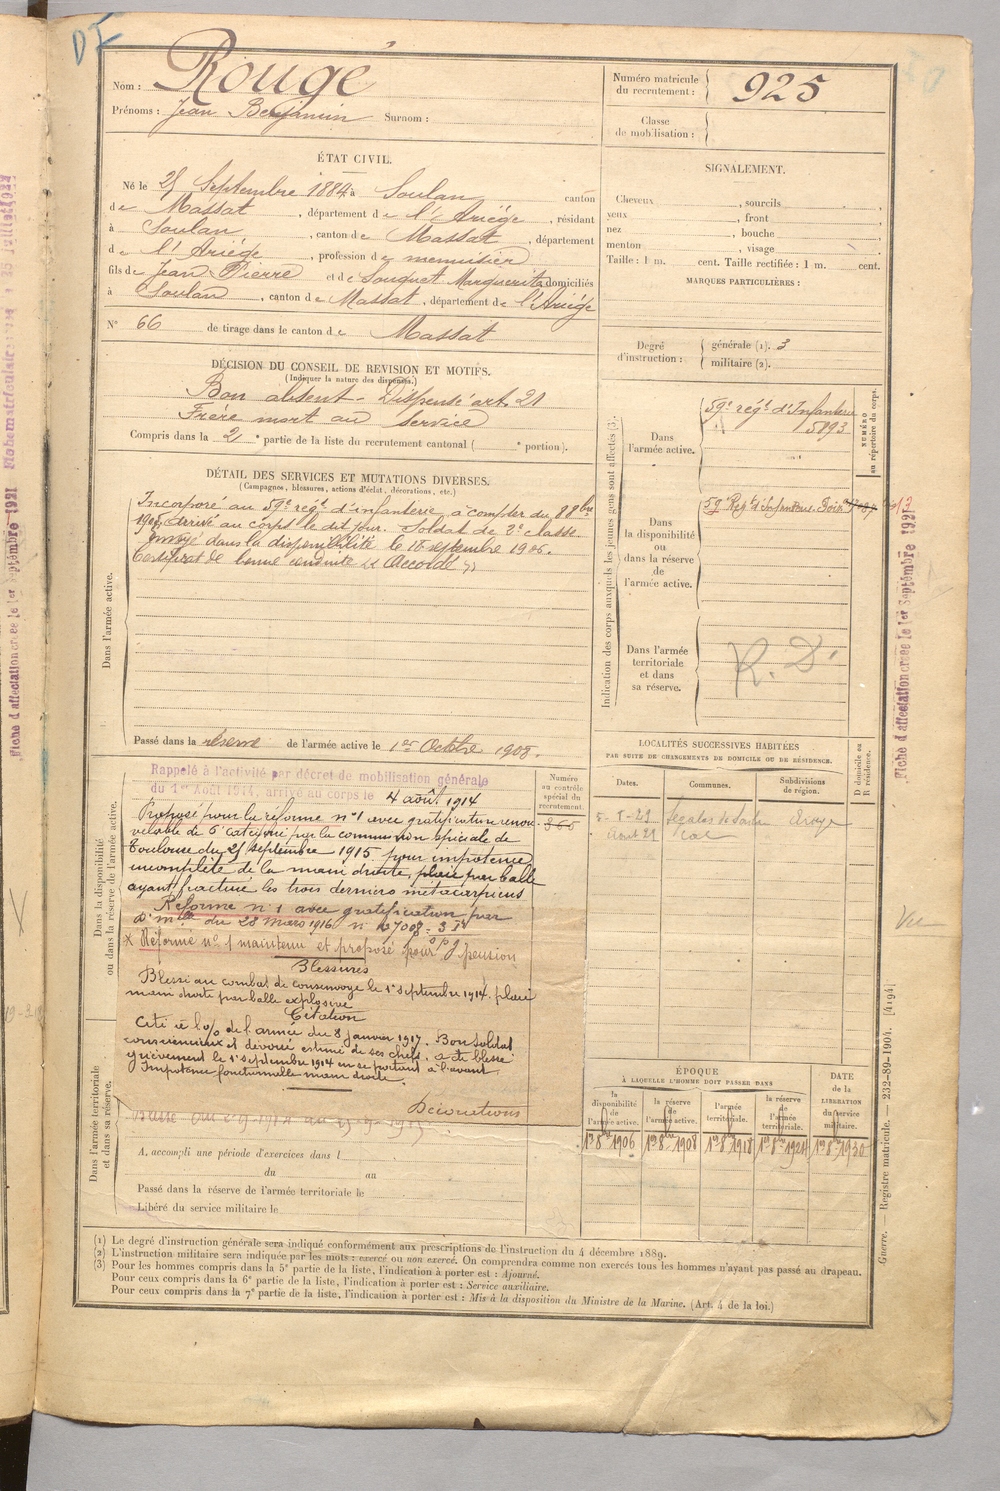 DF
Nom : Rougé
Prénoms : Jean Benjamin Surnom :
Numéro matricule du recrutement : 925
Classe de mobilisation :
ÉTAT CIVIL.
Né le 25 Septembre 1884 à Soulan canton
de Massat, département de l'Ariége, résidant
à Soulan, canton de Massat, département
de l'Ariége, profession de menuisier
fils de Jean Pierre et de Souquet Marguerite domiciliés
à Soulan, canton de Massat, département de l'Ariége
N° 66 de tirage dans le canton de Massat
SIGNALEMENT.
Cheveux , sourcils ,
yeux , front ,
nez , bouche ,
menton , visage
Taille : 1 m. cent. Taille rectifiée : 1 m. cent.
MARQUES PARTICULIÈRES :
Degré d'instruction : générale (1). 3
militaire (2).
DÉCISION DU CONSEIL DE REVISION ET MOTIFS.
(Indiquer la nature des dispenses.)
Bon absent - Dispensé art. 21
Frère mort au service
Compris dans la 2e partie de la liste du recrutement cantonal ( e portion).
DÉTAIL DES SERVICES ET MUTATIONS DIVERSES.
(Campagnes, blessures, actions d'éclat, décorations, etc.)
Dans l'armée active.
Incorporé au 59e régt d'infanterie à compter du 8 8bre
1905, arrivé au corps le dit jour. Soldat de 2e classe.
Envoyé dans la disponibilité le 18 septembre 1906.
Certificat de bonne conduite "Accordé"
Passé dans la réserve de l'armée active le 1er Octobre 1908.
Indication des corps auxquels les jeunes gens sont affectés (3).
NUMÉRO au répertoire du corps.
Dans l'armée active.
59e régt d'Infanterie
5893
Dans la disponibilité ou dans la réserve de l'armée active.
59e Regt d'Infanterie Foix
Dans l'armée territoriale et dans sa réserve.
R. D.
LOCALITÉS SUCCESSIVES HABITÉES
PAR SUITE DE CHANGEMENTS DE DOMICILE OU DE RÉSIDENCE.
D domicile ou R résidence.
Dates. Communes. Subdivisions de région.
Dans la disponibilité ou dans la réserve de l'armée active.
Numéro au contrôle spécial du recrutement.
366
Rappelé à l'activité par décret de mobilisation générale
du 1er Août 1914, arrivé au corps le 4 août 1914
Proposé pour la réforme n°1 avec gratification renou-
velable de 6e catégorie par la commission spéciale de
Toulouse du 25 septembre 1915 pour impotence
incomplète de la main droite, plaie par balle
ayant fracturé les trois derniers métacarpiens
Réformé n°1 avec gratification par
d. mlle du 28 Mars 1916 n°
x Réforme n° 1 maintenu et proposé pour pension
Blessures
Blessé au combat de Consenvoye le 1er septembre 1914. plaie
main droite par balle explosive
Citation
Cité à l'o/ de l'armée du 8 janvier 1917. Bon soldat
consciencieux et dévoué estimé de ses chefs. a été blessé
grièvement le 1er septembre 1914 en se portant à l'avant.
Impotence fonctionnelle main droite.
Décorations
Dans l'armée territoriale et dans sa réserve.
A. accompli une période d'exercices dans l
du au
Passé dans la réserve de l'armée territoriale le
Libéré du service militaire le
ÉPOQUE
À LAQUELLE L'HOMME DOIT PASSER DANS
la disponibilité de l'armée active.
la réserve de l'armée active.
l'armée territoriale.
la réserve de l'armée territoriale.
DATE de la LIBÉRATION du service militaire.
1er 8bre 1906 1er 8bre 1908 1er 8bre 1918 1er 8bre 1924 1er 8bre 1930
(1) Le degré d'instruction générale sera indiqué conformément aux prescriptions de l'instruction du 4 décembre 1889.
(2) L'instruction militaire sera indiquée par les mots : exercé ou non exercé. On comprendra comme non exercés tous les hommes n'ayant pas passé au drapeau.
(3) Pour les hommes compris dans la 5e partie de la liste, l'indication à porter est : Ajourné.
Pour ceux compris dans la 6e partie de la liste, l'indication à porter est : Service auxiliaire.
Pour ceux compris dans la 7e partie de la liste, l'indication à porter est : Mis à la disposition du Ministre de la Marine. (Art. 4 de la loi.)
Guerre. — Registre matricule. — 232-89-1904. [4194]
Fiche d'affectation créée le 1er Septembre 1921
Fiche d'affectation créée le 1er Septembre 1921
Vu